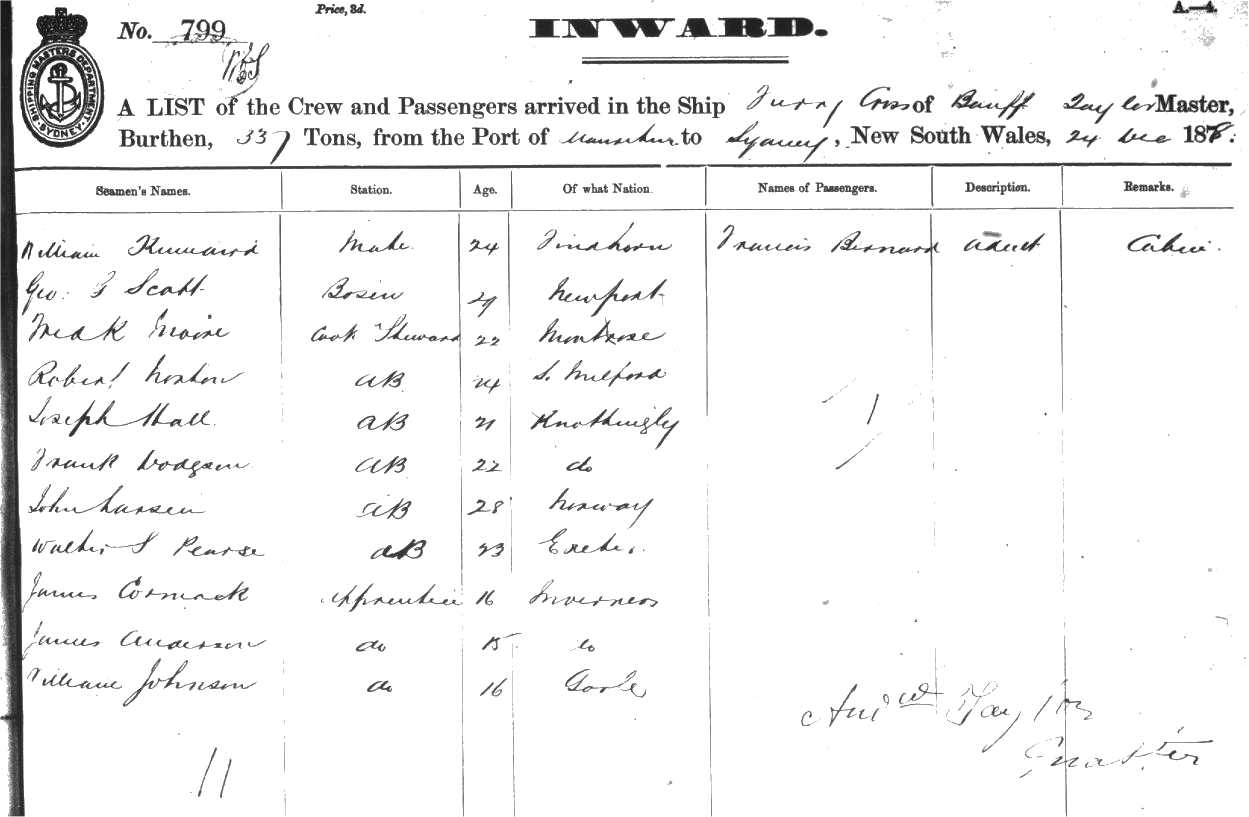 Price, 3d.
A.—4.
No. 799
INWARD.
SHIPPING MASTERS DEPARTMENT SYDNEY
A LIST of the Crew and Passengers arrived in the Ship Turry Cross of Banff Taylor Master,
Burthen, 337 Tons, from the Port of to Sydney, New South Wales, 24 Dec 1878:
Seamen's Names. Station. Age. Of what Nation. Names of Passengers. Description. Remarks.
William Kinnaird Mate 24 Findhorn Francis Bernard adult Cabin.
Geo. G Scott Bosen 29 Newport
Fredk Moire Cook Steward 22 Montrose
Robert Norton AB 24 S. Milford
Joseph Hall AB 21 Knottingly 1
Frank Dodgson AB 22 do
John Larsen AB 28 Norway
Walter S Pearse AB 23 Exeter
James Cormack Apprentice 16 Inverness
James Anderson do 15 do
William Johnson do 16 Goole
Andw Taylor
Master
11